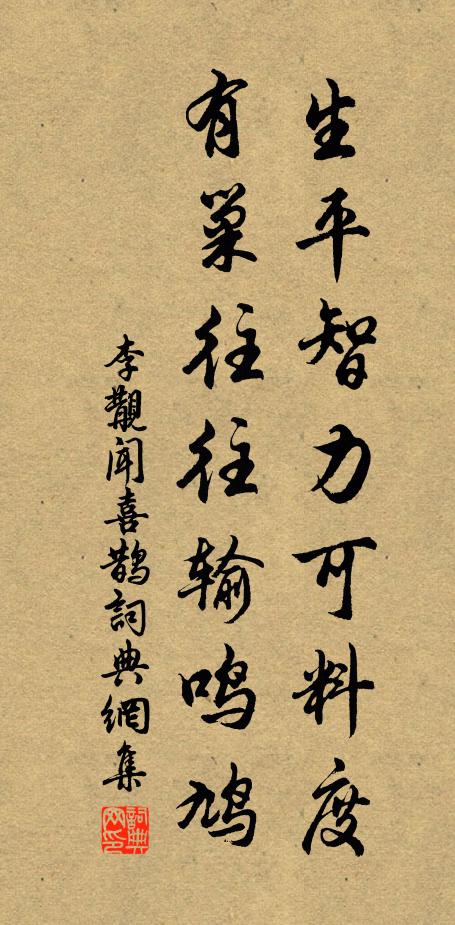 生平智力可料度
有巢往往输鸣鸠
李觏闻喜鹊詞典網集
詞典网印